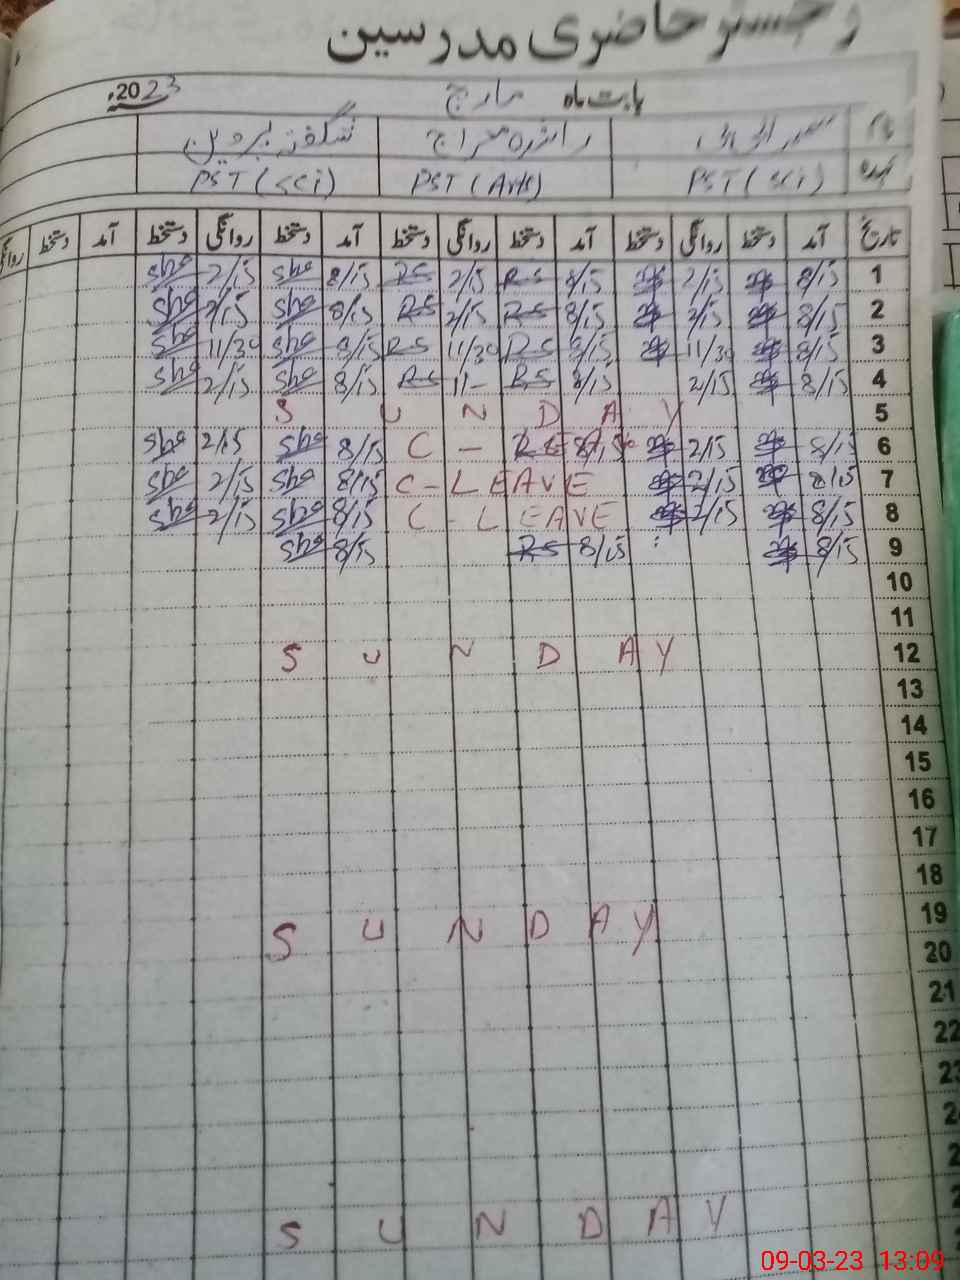 رجسٹر حاضری مدرسین
بابت ماہ مارچ 2023ء
نام راشدہ معراج شگفتہ پروین
عہدہ PST (Sci) PST (Arts) PST (Sci)
تاریخ آمد دستخط روانگی دستخط آمد دستخط روانگی دستخط آمد دستخط روانگی دستخط آمد دستخط روانگی
1 8/15 2/15 8/15 RS 2/15 RS 8/15 Sha 2/15 Sha
2 8/15 2/15 8/15 RS 2/15 RS 8/15 Sha 2/15 Sha
3 8/15 11/30 8/15 RS 11/30 RS 8/15 Sha 11/30 Sha
4 8/15 2/15 8/15 RS 11- RS 8/15 Sha 2/15 Sha
5 SUNDAY
6 8/15 2/15 C - LEAVE 8/15 Sha 2/15 Sha
7 8/15 2/15 C - LEAVE 8/15 Sha 2/15 Sha
8 8/15 2/15 C - LEAVE 8/15 Sha 2/15 Sha
9 8/15 8/15 RS 8/15 Sha
10
11
12 SUNDAY
13
14
15
16
17
18
19 SUNDAY
20
21
22
23
SUNDAY
09-03-23 13:09